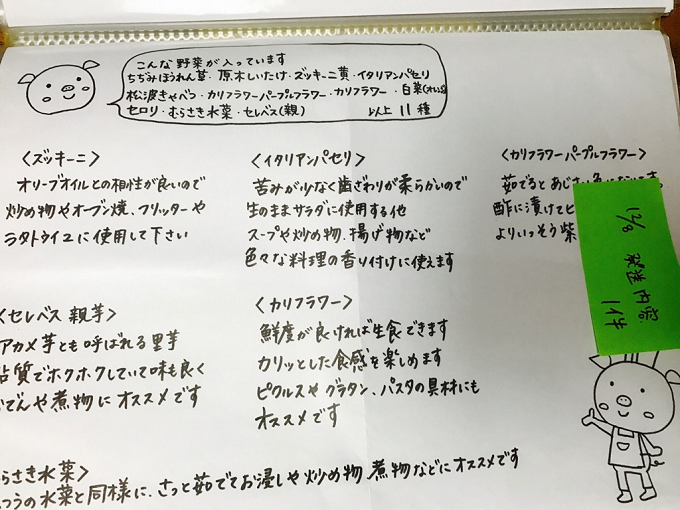 こんな野菜が入っています
ちぢみほうれん草・原木しいたけ・ズッキーニ黄・イタリアンパセリ
松波きゃべつ・カリフラワーパープルフラワー・カリフラワー・白菜(オレンジ)
セロリ・むらさき水菜・セレベス(親) 以上 11種
<ズッキーニ>
オリーブオイルとの相性が良いので
炒め物やオーブン焼、フリッターや
ラタトウイユに使用して下さい
<イタリアンパセリ>
苦みが少なく歯ざわりが柔らかいので
生のままサラダに使用する他
スープや炒め物、揚げ物など
色々な料理の香り付けに使えます
<カリフラワーパープルフラワー>
茹でるとあじさい色になります
酢に漬けてピ
よりいっそう紫
12/8
発送内容
1件
<セレベス 親芋>
アカメ芋とも呼ばれる里芋
粘質でホクホクしていて味も良く
おでんや煮物にオススメです
<カリフラワー>
鮮度が良ければ生食できます
カリッとした食感を楽しめます
ピクルスやグラタン、パスタの具材にも
オススメです
らさき水菜>
つうの水菜と同様に、さっと茹でてお浸しや炒め物、煮物などにオススメです